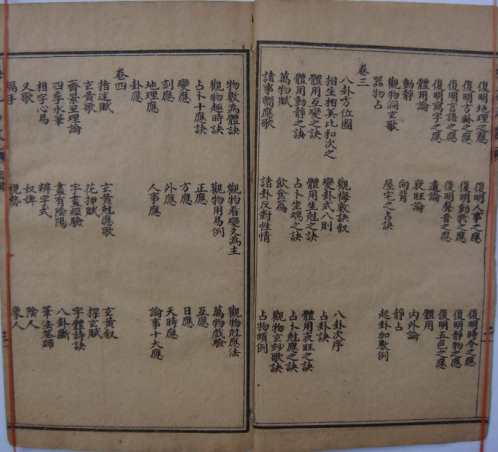 復明地理之應 復明人事之應 復明時令之應
復明方卦之應 復明動物之應 復明靜物之應
復明言語之應 復明聲音之應 復明五色之應
復明寫字之應 遺論 體用
體用論 衰旺論 內外論
動靜 向背 靜占
觀物洞玄歌 屋宅之占訣 起卦加數例
器物占
卷三
八卦方位圖 觀梅數訣叙 八卦次序
相生相尅比和次之 變卦式八則 占卦訣
體用互變之訣 體用生尅之訣 體用衰旺之訣
體用動靜之訣 占卜坐端之訣 占卜尅應之訣
萬物賦 飲食篇 觀物玄妙歌訣
諸事響應歌 諸卦反對性情 占物類例
物數為體訣 觀物看變爻為主 觀物尅應法
觀物趣時訣 觀物用易例 萬物戲驗
占卜十應訣 正應 互應
變應 方應 日應
刻應 外應 天時應
地理應 人事應 論事十大應
卦應
卷四
指迷賦 玄黃尅應歌 玄黃叙
玄黃歌 花押賦 探玄賦
齊景至理論 字畫經驗 字體詩訣
四季水筆 畫有陰陽 八卦斷
相字心易 辨字式 筆法筌蹄
又歌 奴婢 陰人